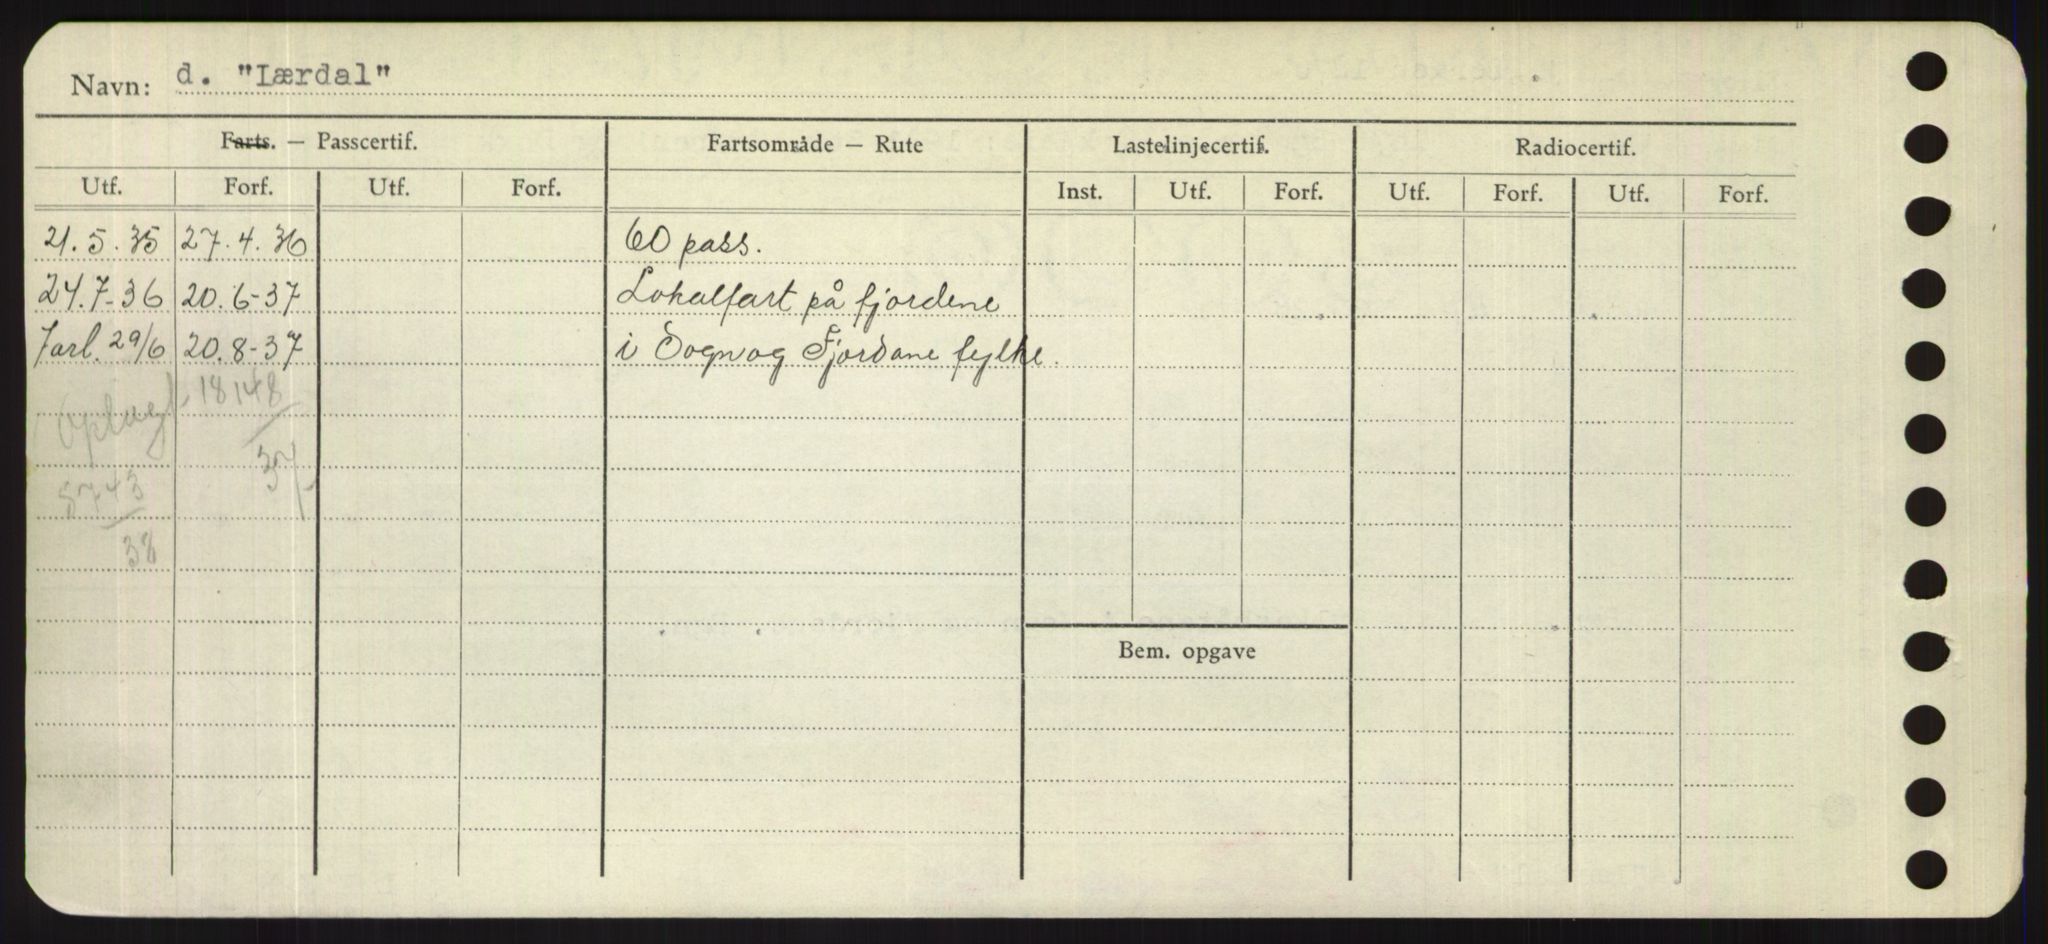 Navn: d. "Lærdal"
Farts. — Passcertif. Fartsområde — Rute Lastelinjecertif. Radiocertif.
Utf. Forf. Utf. Forf. Inst. Utf. Forf. Utf. Forf. Utf. Forf.
21.5.35 27.4.36 60 pass.
24.7-36 20.6-37 Lokalfart på fjordene
Forl. 29/6 20.8-37 i Sogn og Fjordane fylke.
Oplag 18148
37
8743
38
Bem. opgave